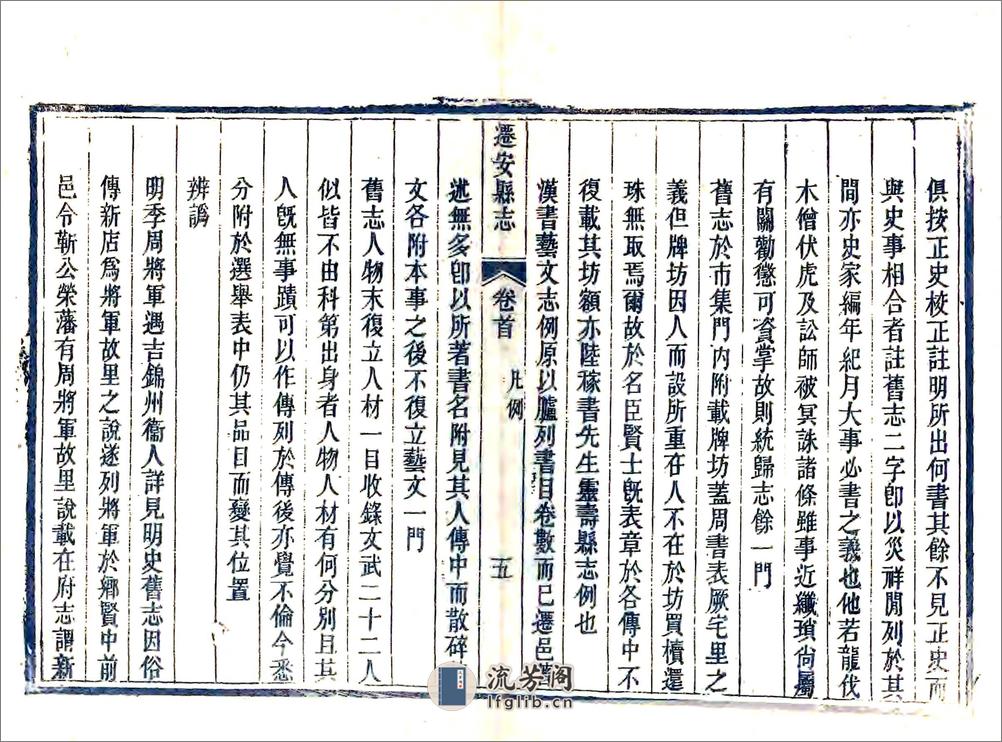 俱按正史校正註明所出何書其餘不見正史而
與史事相合者註舊志二字卽以災祥閒列於其
間亦史家編年紀月大事必書之義也他若龍伐
木僧伏虎及訟師被冥誅諸條雖事近纖瑣尙屬
有關勸懲可資掌故則統歸志餘一門
舊志於市集門內附載牌坊蓋周書表厥宅里之
義但牌坊因人而設所重在人不在於坊買櫝還
珠無取焉爾故於名臣賢士旣表章於各傳中不
復載其坊額亦陸稼書先生靈壽縣志例也
漢書藝文志例原以臚列書目卷數而已遷邑著
遷安縣志
卷首
凡例
五
述無多卽以所著書名附見其人傳中而散碎
文各附本事之後不復立藝文一門
舊志人物末復立人材一目收錄文武二十二人
似皆不由科第出身者人物人材有何分別且其
人旣無事蹟可以作傳列於傳後亦覺不倫今悉
分附於選舉表中仍其品目而變其位置
辨譌
明季周將軍遇吉錦州衞人詳見明史舊志因俗
傳新店爲將軍故里之說遂列將軍於鄉賢中前
邑令靳公榮藩有周將軍故里說載在府志謂新
流芳阁
lfglib.cn